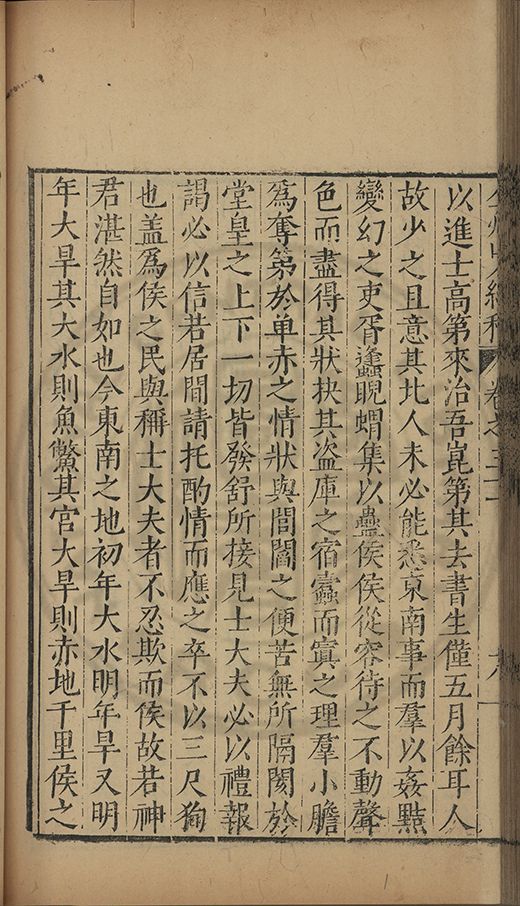 弇州史續稿 卷之三十 十八
以進士高第來治吾崑第其去書生僅五月餘耳人
故少之且意其北人未必能悉東南事而羣以姦黠
變幻之吏胥蠭睨蝟集以蠱侯侯從容待之不動聲
色而盡得其狀抉其盜庫之宿蠹而寘之理羣小膽
爲奪第於单赤之情狀與閭閻之便苦無所隔閡於
堂皇之上下一切皆發舒所接見士大夫必以禮報
謁必以信若居間請托酌情而應之卒不以三尺狥
也盖爲侯之民與稱士大夫者不忍欺而侯故若神
君湛然自如也今東南之地初年大水明年旱又明
年大旱其大水則魚鱉其官大旱則赤地千里侯之